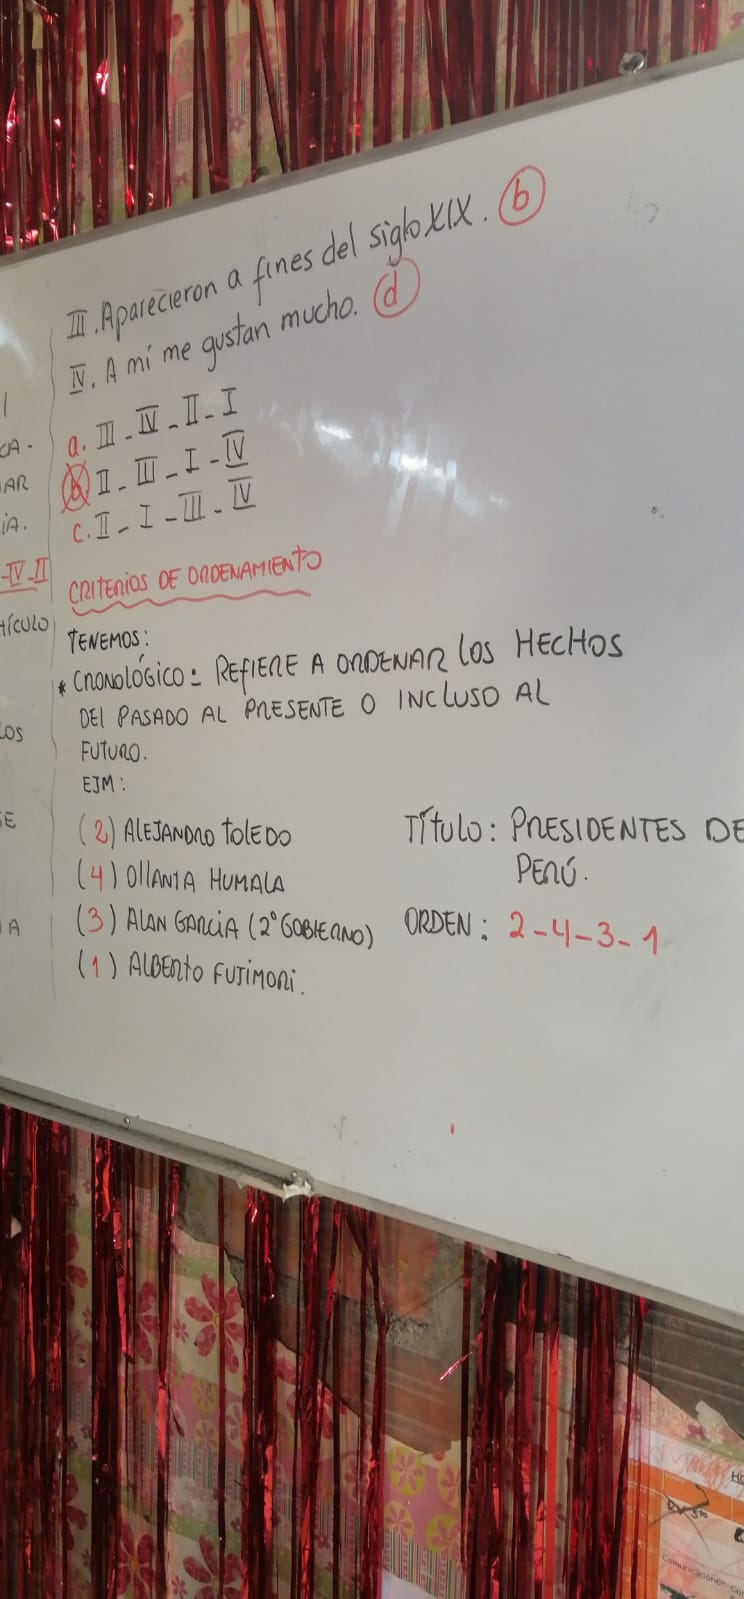 CA-
AR
iA.
-IV-II
TÍCULO
LOS
SE
A
III. Aparecieron a fines del siglo XIX. b
IV. A mi me gustan mucho. d
a. III - IV - II - I
b II - III - I - IV
c. II - I - III - IV
CRITERIOS DE ORDENAMIENTO
TENEMOS:
* CRONOLÓGICO: REFIERE A ORDENAR LOS HECHOS
DEL PASADO AL PRESENTE O INCLUSO AL
FUTURO.
EJM:
(2) ALEJANDRO TOLEDO
(4) OLLANTA HUMALA
(3) ALAN GARCIA (2° GOBIERNO)
(1) ALBERTO FUJIMORI.
TÍTULO: PRESIDENTES DE
PERÚ.
ORDEN: 2-4-3-1
Comunicacione